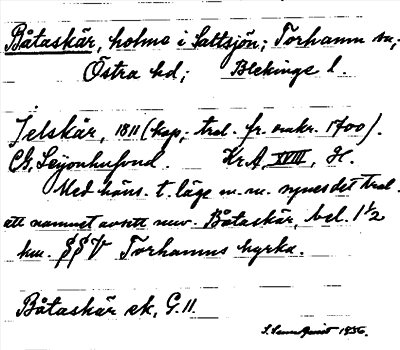 Båtaskär, holme i Saltsjön; Torhamn sn;
Östra hd; Blekinge l.
Jelskär, 1811 (kop; trol. fr. omkr. 1700).
CG. Leijonhufvud. KrA, XVIII, H.
Med häns. t. läge m. m. synes det trol.
att namnet avsett nuv. Båtaskär, bel. 1 1/2
km. SSV Torhamns kyrka.
Båtaskär ek, G. 11.
1936.